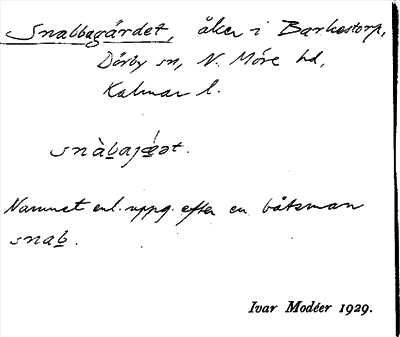 Snalbagärdet, åker i Barkestorp,
Dörby sn, N. Möre hd,
Kalmar l.
snàbajǽət.
Namnet enl. uppg. efter en båtsman
snab.
Ivar Modéer 1929.